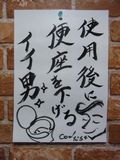 使用後に
便座を下げる
イイ男